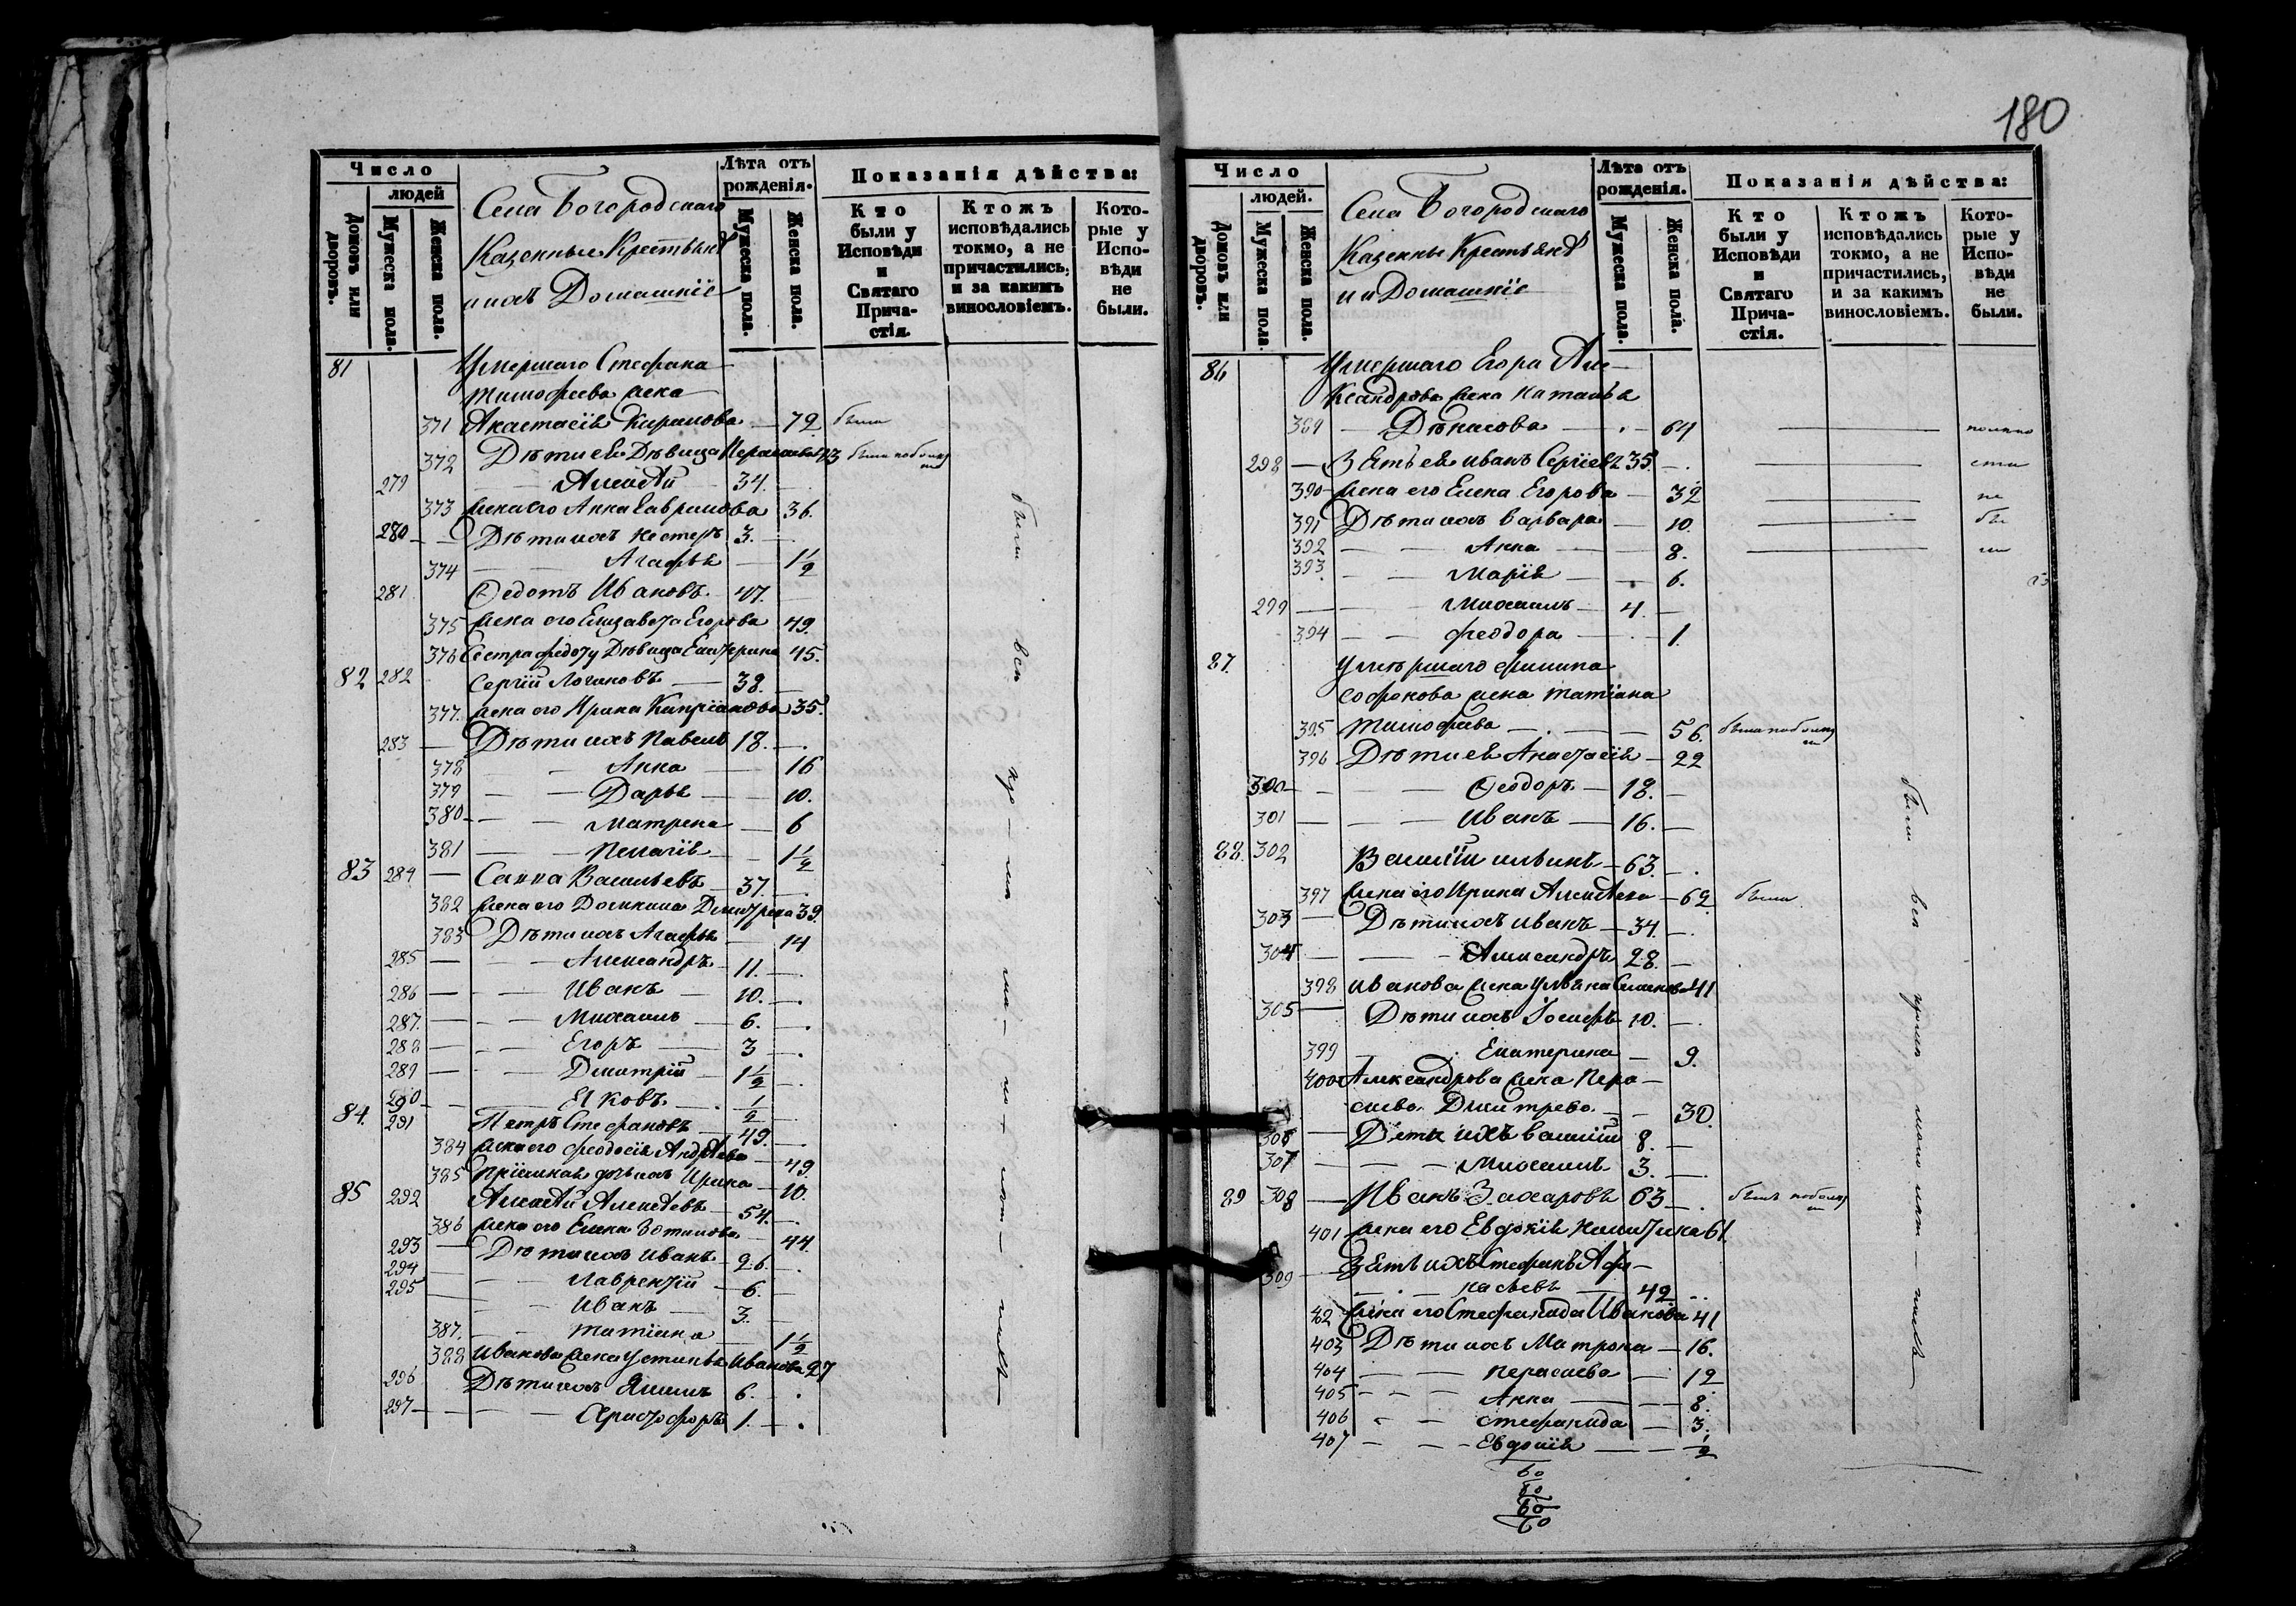 180
Число
людей
Домовъ или дворовъ.
Мужеска пола.
Женска пола.
Села Богородскаго
Казенные Крестьяне
и ихъ Домашніе
Лѣта отъ рожденія.
Мужеска пола.
Женска пола.
Показанія дѣйства:
Кто были у Исповѣди и Святаго Причастія.
Ктожъ исповѣдались токмо, а не причастились, и за какимъ винословіемъ.
Которые у Исповѣди не были.
81 Умершаго Стефана
Тимофеева жена
371 Анастасія Кирилова 72 была
372 Дѣти ея Дѣвица 
279 Алексѣй 34.
373 жена его Анна Гаврилова 36.
280 Дѣти ихъ Нестеръ 3.
374 Агафья 1 1/2
281 Ѳедотъ Ивановъ 47.
375 жена его Елизавета Егорова 49.
376 Сестра Федоту Дѣвица Екатерина 45.
82 282 Сергій Логиновъ 38.
377. жена его Ирина Кипріанова 35.
283 Дѣти ихъ Павелъ 18.
378 Анна 16
379 Дарья 10.
380 Матрена 6
381 Пелагія 1 1/2
83 284 Савва Васильевъ 37.
382 жена его Домникія Дмитрева 39.
383 Дѣти ихъ Агафья 14
285 Александръ 11.
286 Иванъ 10.
287. Михаилъ 6.
288 Егоръ 3
289 Дмитрій 1 1/2
290 Яковъ 1/2
84. 291 Петръ Стефановъ 49.
384 жена его Феодосія Андрѣева 49.
385 Пріимная дочь ихъ Ирина 10.
85 292 Алексѣй Алексѣевъ 54.
386 жена его Елена Зотикова 44.
293 Дѣти ихъ Иванъ 26.
294 Лаврентій 6.
295 Иванъ 3.
387. Татіана 1 1/2
388 Иванова жена Устинья Иванова 27
296 Дѣти ихъ 6.
297 Христофоръ 1.
были всѣ
Число
людей.
Домовъ или дворовъ.
Мужеска пола.
Женска пола.
Села Богородскаго
Казенные Крестьяне
и и Домашніе
Лѣта отъ рожденія.
Мужеска пола.
Женска пола.
Показанія дѣйства:
Кто были у Исповѣди и Святаго Причастія.
Ктожъ исповѣдались токмо, а не причастились, и за какимъ винословіемъ.
Которые у Исповѣди не были.
86 Умершаго Егора Але-
ксандрова жена Наталья
389 Денисова 64
298 Зять ея Иванъ Сергіевъ 35.
390 жена его Елена Егорова 32 не
391 Дѣти ихъ Варвара 10. бы
392 Анна 8. ли
393. Марія 6.
299 Михаилъ 4.
394 Феодора 1.
87. Умершаго Филипа
Софонова жена Татіана
395 Тимофеева 56.
396 Дѣти ея Анастасія 22
300 Ѳеодоръ 18.
301 Иванъ 16.
88. 302 Василій Ильинъ 63.
397 жена его Ирина Алексѣева 62 была
303 Дѣти ихъ Иванъ 34.
304 Александръ 28.
398 Иванова жена Ульяна 41
305 Дѣти ихъ Іосифъ 10.
399 Екатерина 9.
400 Александрова жена Пара-
скева Дмитрева 30.
306 Дѣти ихъ Василій 8.
307 Михаилъ 3.
89 308 Иванъ Захаровъ 63
401 жена его Евдокія Никитина 61
309 Зять ихъ Стефанъ Афа-
насьевъ 42
42 жена его Стефанида Иванова 41
403 Дѣти ихъ Матрона 16.
404 Параскева 12
405 Анна 8.
406 Стефанида 3.
407 Евдокія 1/2
60
80
60
60
были всѣ кромѣ